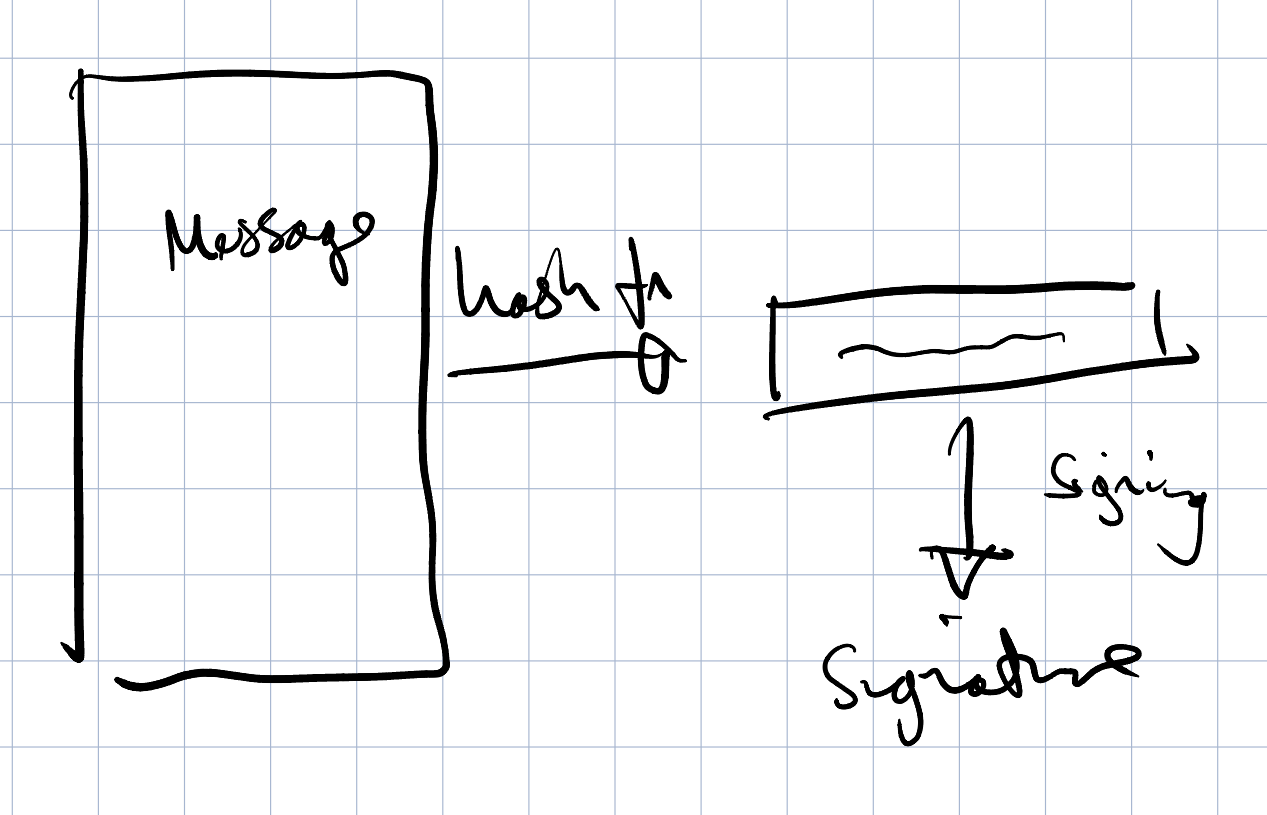 Message
hash fn
Signing
Signature